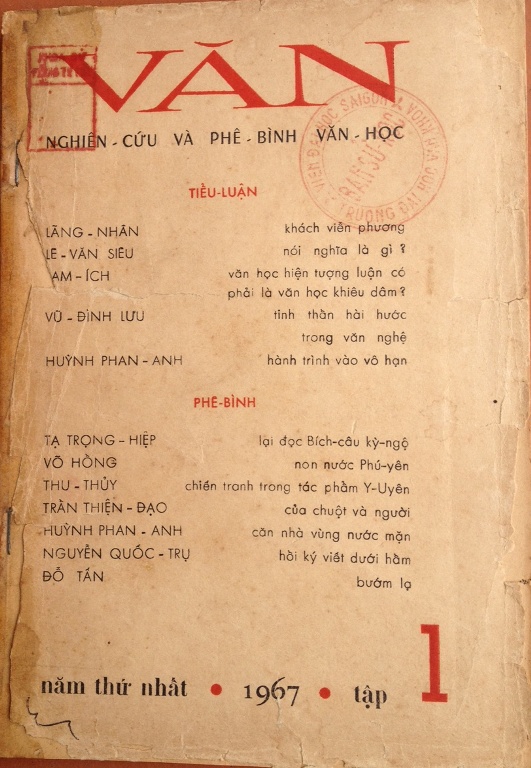 VĂN
NGHIÊN - CỨU VÀ PHÊ - BÌNH VĂN - HỌC
TIỂU-LUẬN
LÃNG - NHÂN khách viễn phương
LÊ - VĂN SIÊU nói nghĩa là gì ?
TAM - ÍCH văn học hiện tượng luận có
phải là văn học khiêu dâm ?
VŨ - ĐÌNH LƯU tinh thần hài hước
trong văn nghệ
HUỲNH PHAN - ANH hành trình vào vô hạn
PHÊ-BÌNH
TẠ TRỌNG - HIỆP lại đọc Bích-câu kỳ-ngộ
VÕ HỒNG non nước Phú-yên
THU - THỦY chiến tranh trong tác phẩm Y-Uyên
TRẦN THIỆN - ĐẠO của chuột và người
HUỲNH PHAN - ANH căn nhà vùng nước mặn
NGUYỄN QUỐC - TRỤ hồi ký viết dưới hầm
ĐỖ TẤN bướm lạ
năm thứ nhất • 1967 • tập 1
VIỆN ĐẠI HỌC SAIGON
TRƯỜNG ĐẠI HỌC VĂN KHOA